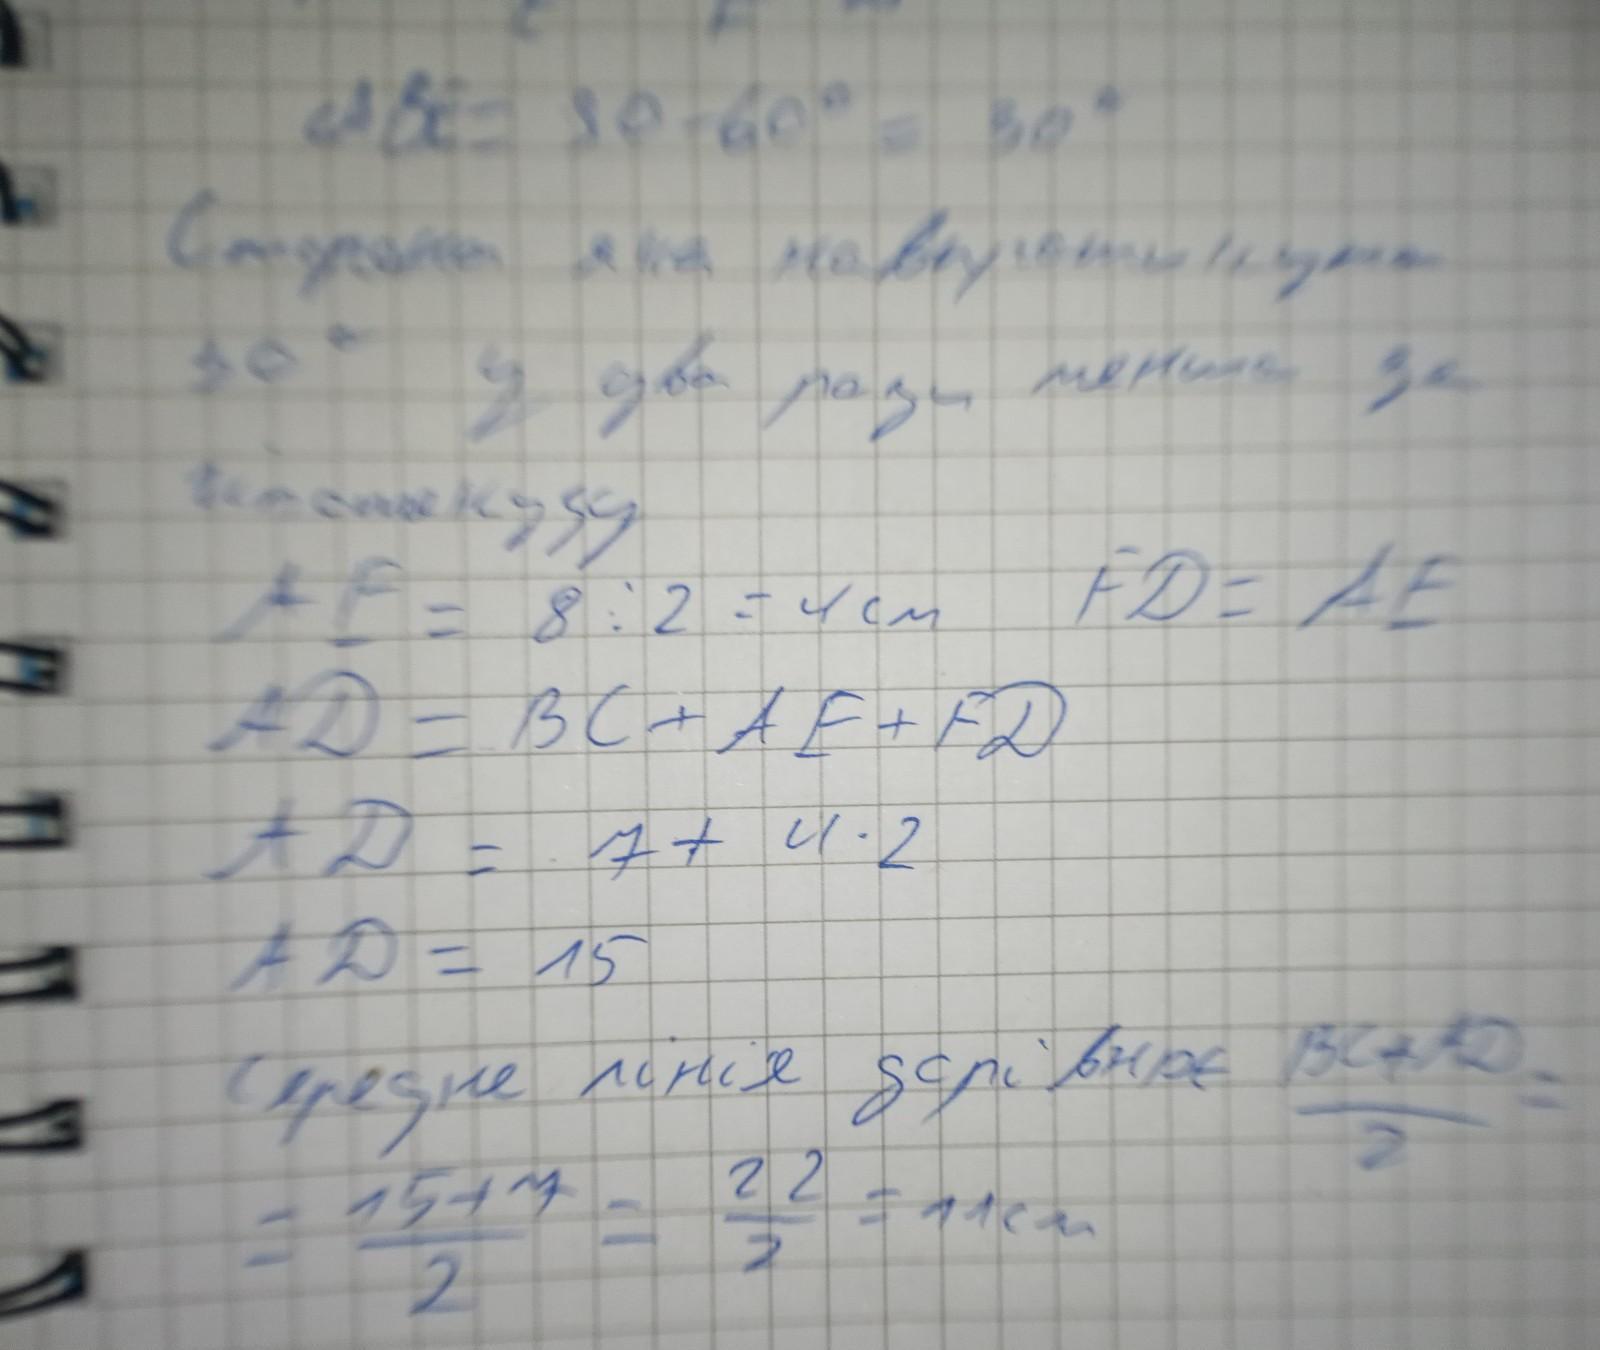 ABE = 90 - 60° = 30°
Сторона яка навпроти кута
30° у два рази менша за
гіпотенузу
AE = 8 : 2 = 4 см FD = AE
AD = BC + AE + FD
AD = 7 + 4 · 2
AD = 15
Середне лінія дорівнює BC+AD/2 =
= 15+7/2 = 22/2 = 11 см